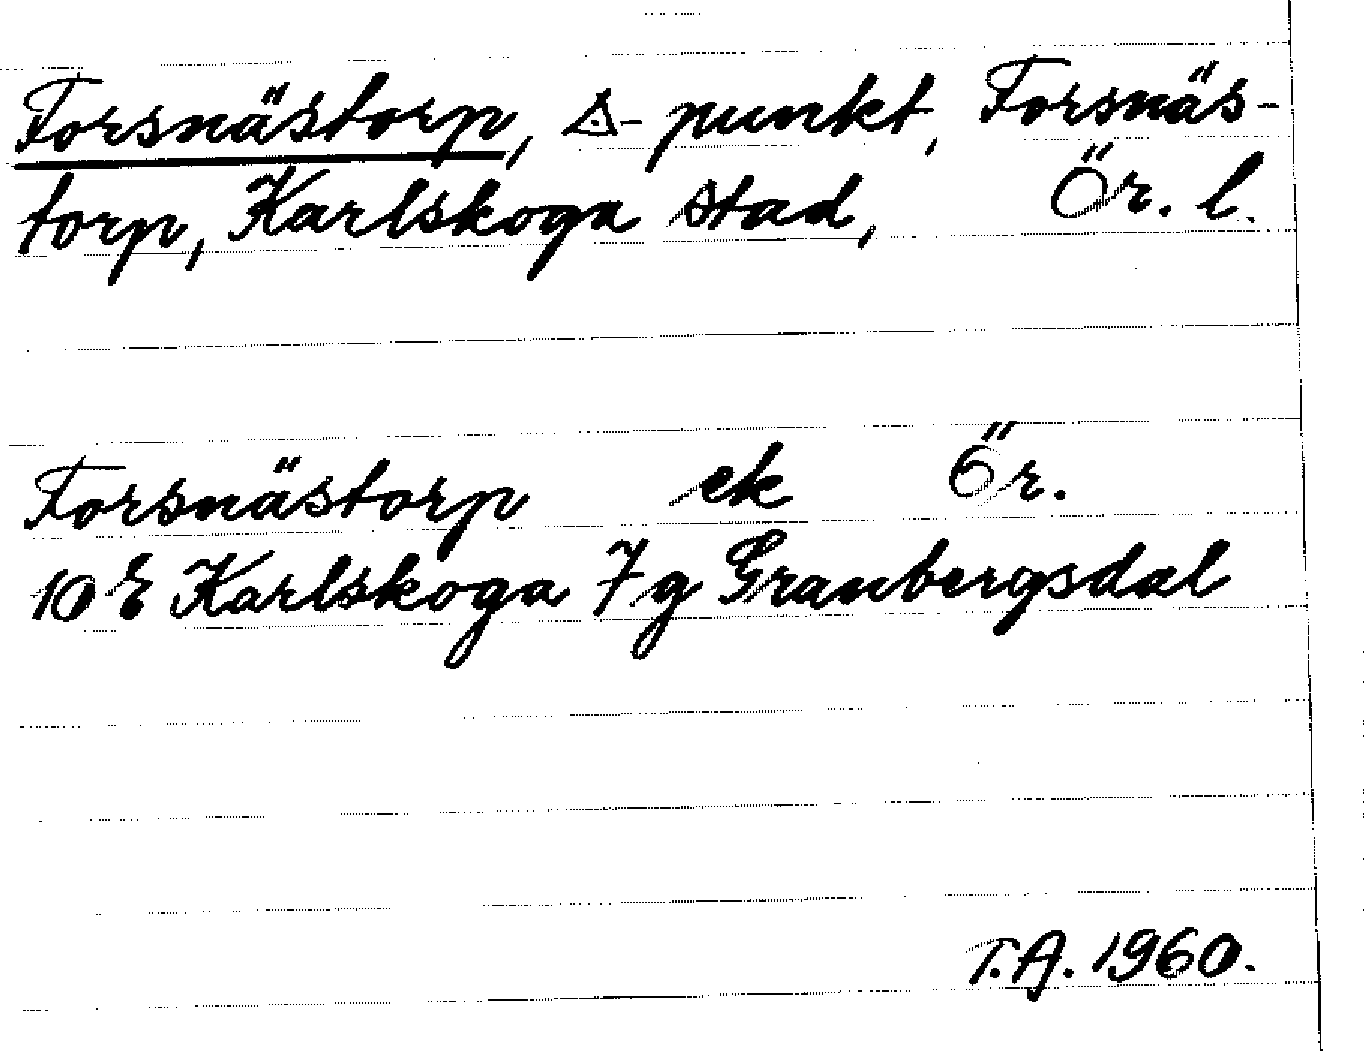 Forsnästorp, △-punkt, Forsnäs-
torp, Karlskoga stad, Ör. l.
Forsnästorp ek Ör.
10 E Karlskoga 7 g Granbergsdal
T.A. 1960.